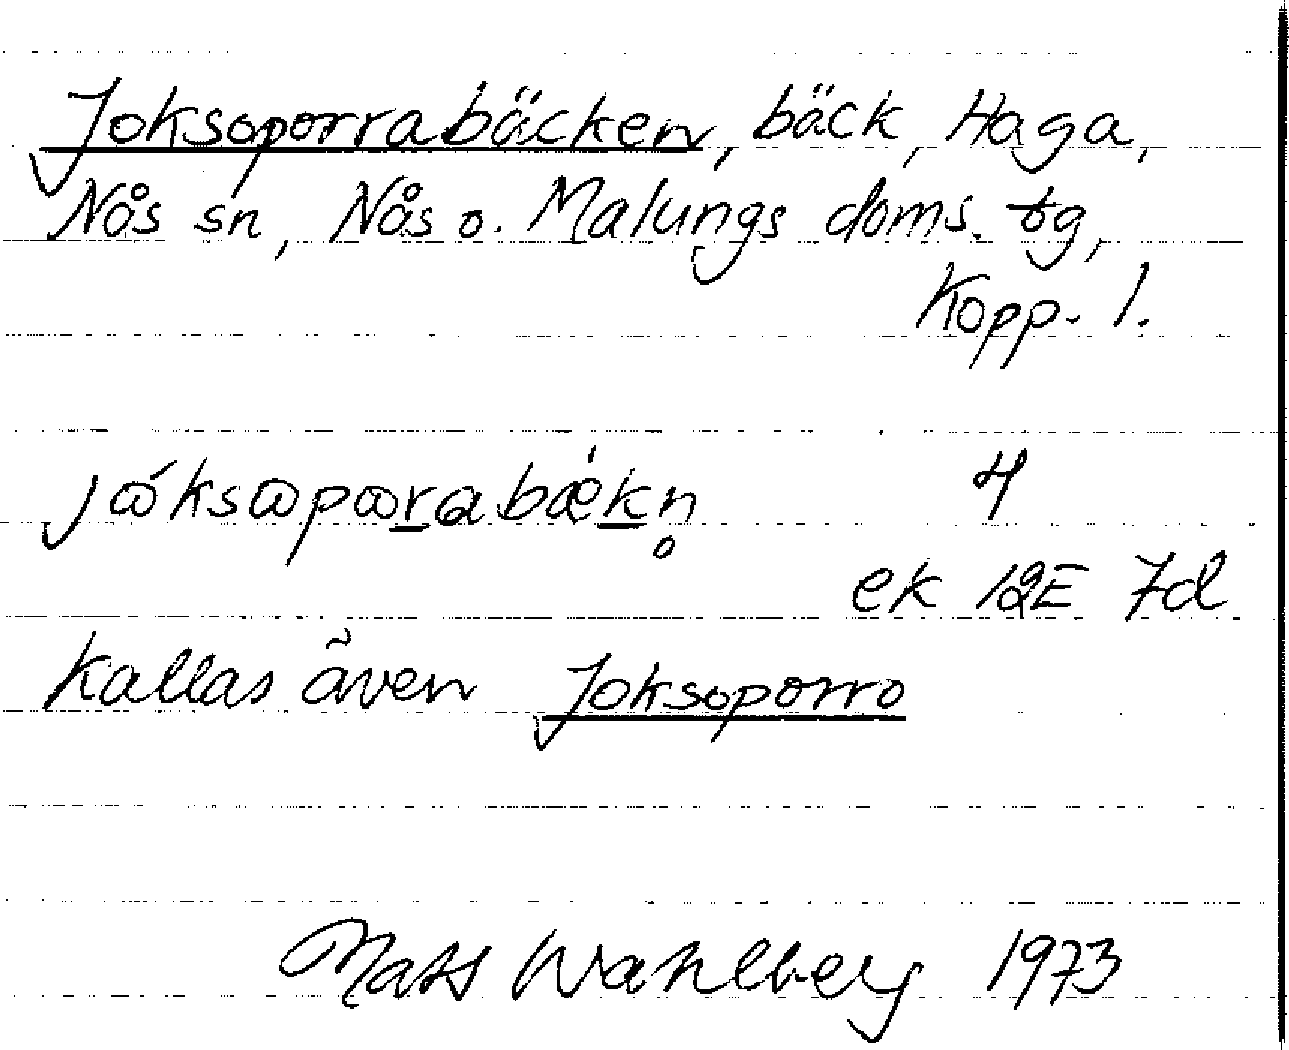 Joksoporrabäcken, bäck, Haga,
Nås sn, Nås o. Malungs doms. tg,
Kopp. l.
jɷ́ksɷpɷrabæ̀kn̥ 4
ek 12E 7d
Kallas även Joksoporro
Mats Wahlberg 1973